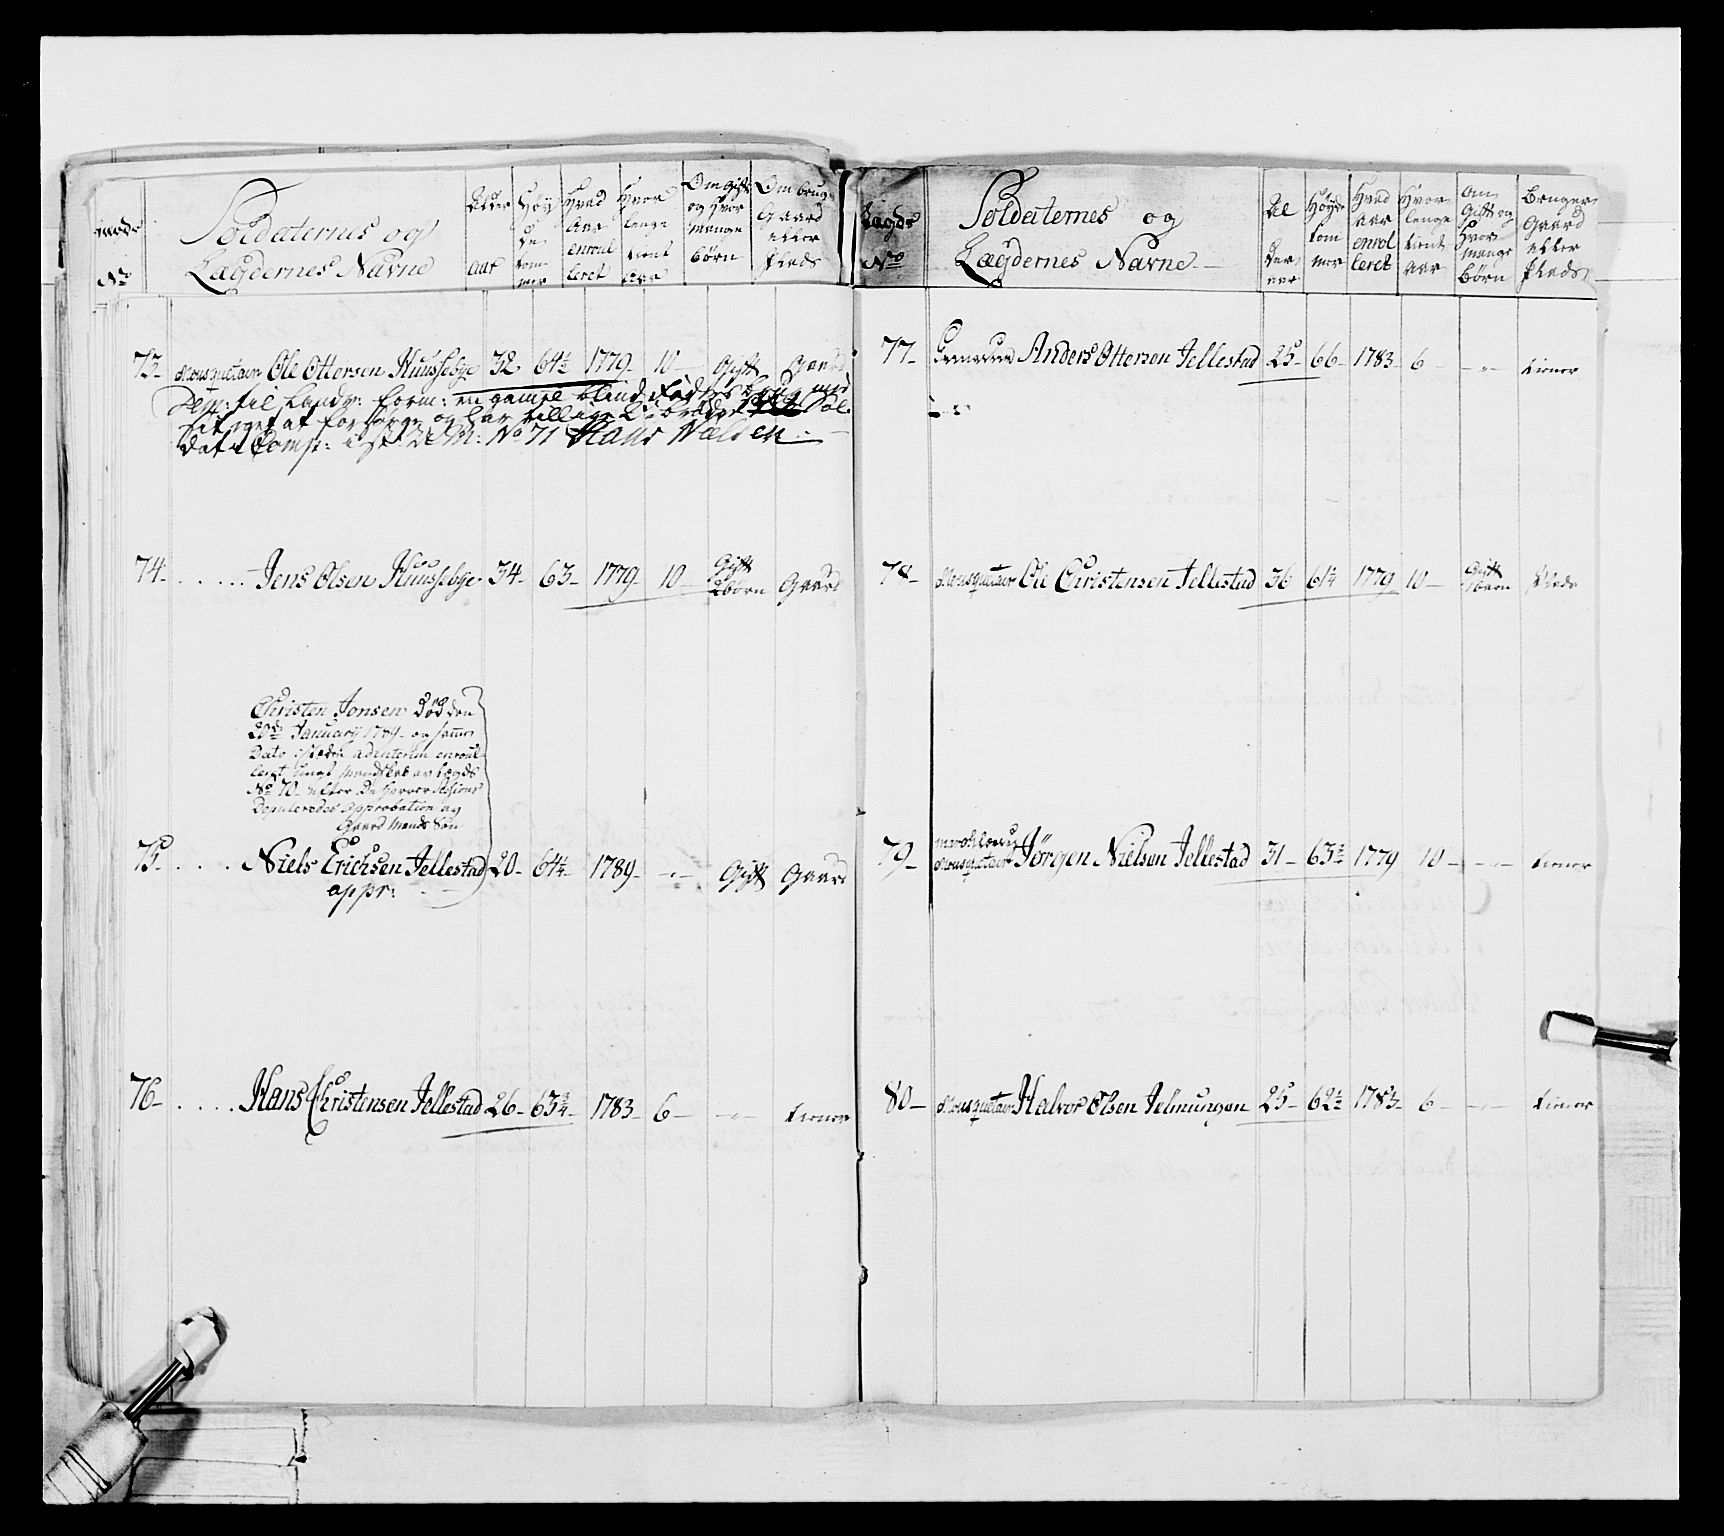 Lægds No
Soldaternes og
Lægdernes Navne
Alder aar
Høyde tommer
Hvad Aar enroulleret
Hvor lenge tient aar
Om gift og Hvor mange børn
Om bruger Gaard eller Plads
73- Mousquetair Ole Ottersen Huussebye 32 64½ 1779- 10- Gift Gaard
til Landv: form: en gamel blind Fader
at forsørge og har tillige 2de brødre Sol-
dat Comp: No 71 Hans Nælsen
74- Jens Olsen Huussebye 34- 63- 1779- 10- Gift 2 børn Gaard
Christen Jonsen død den
20de January 1789- og samme
Dato adinterim enroul-
leret ungt Mandskab av Lægds
No 70- efter De Herrer Sessions
Deputeredes Approbation og
Gaard Mands Søn
75- Niels Erichsen Jellestad 20- 64¼- 1789- -"- Gift Gaard
appr:
76- Hans Christensen Jellestad 26- 63¾- 1783- 6- -"- tiener
Lægds No
Soldaternes og
Lægdernes Navne-
Alder aar
Høyde tommer
Hvad aar enrolleret
Hvor lenge tient aar
om Gift og Hvor mange børn
bruger Gaard eller Plads
77- Anders Ottersen Jellestad 25- 66- 1783- 6- -"- tiener
78- Mousquetair Ole Christensen Jellestad 36 61¼ 1779 10- Gift 1 børn Plads
79- Mousquetair Jörgen Nielsen Jellestad 31- 63½ 1779 10- -"- tiener
80- Mousquetair Halvor Olsen Jelmungen 25- 62½ 1783- 6- -"- tiener